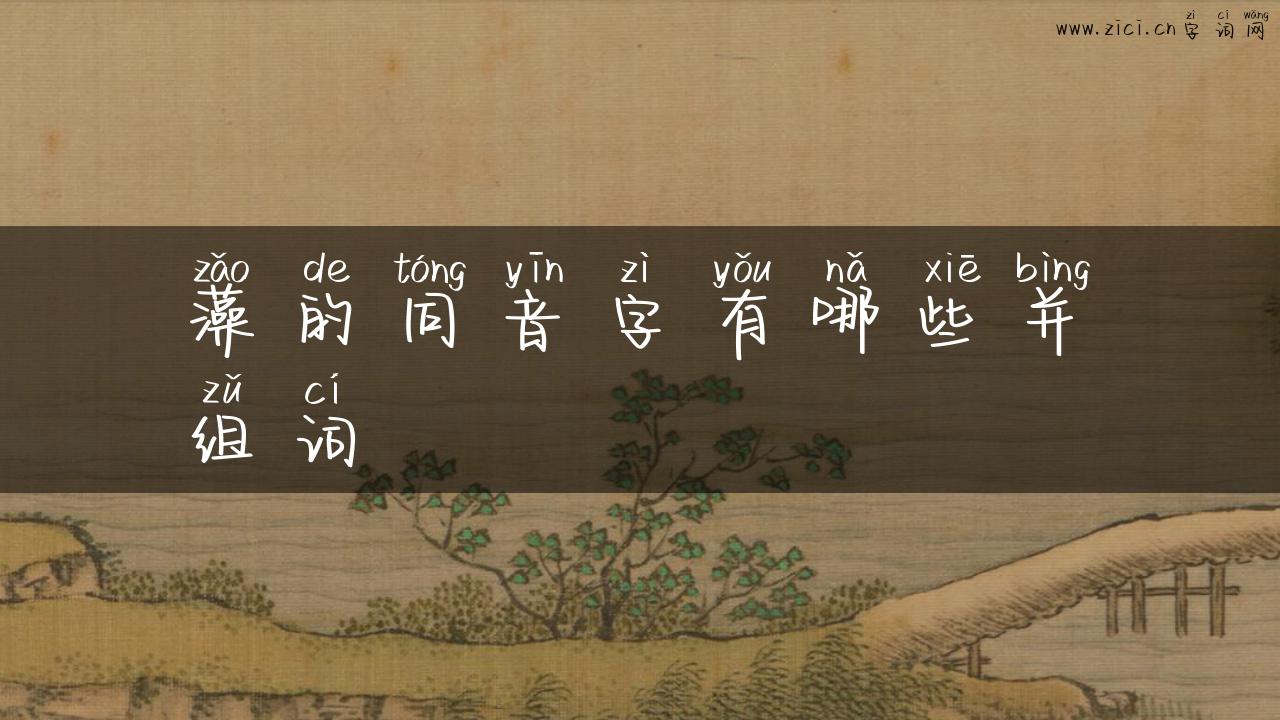 zì cí wǎng
www.zici.cn 字词网
zǎo de tóng yīn zì yǒu nǎ xiē bìng
藻的同音字有哪些并
zǔ cí
组词